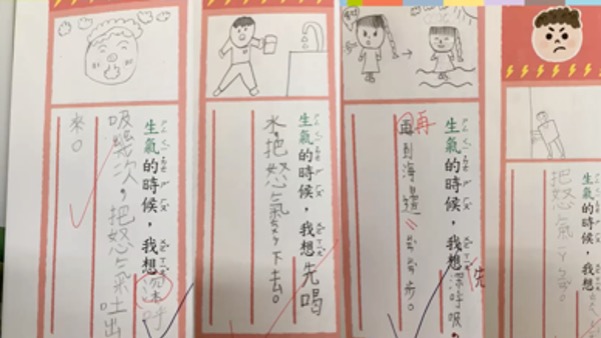 生氣的時候，我想
把怒氣
生氣的時候，我想先深呼吸，
再到海邊步。
生氣的時候，我想先喝
水，把怒氣下去。
生氣的時候，我想深呼
吸幾次，把怒氣吐出
來。